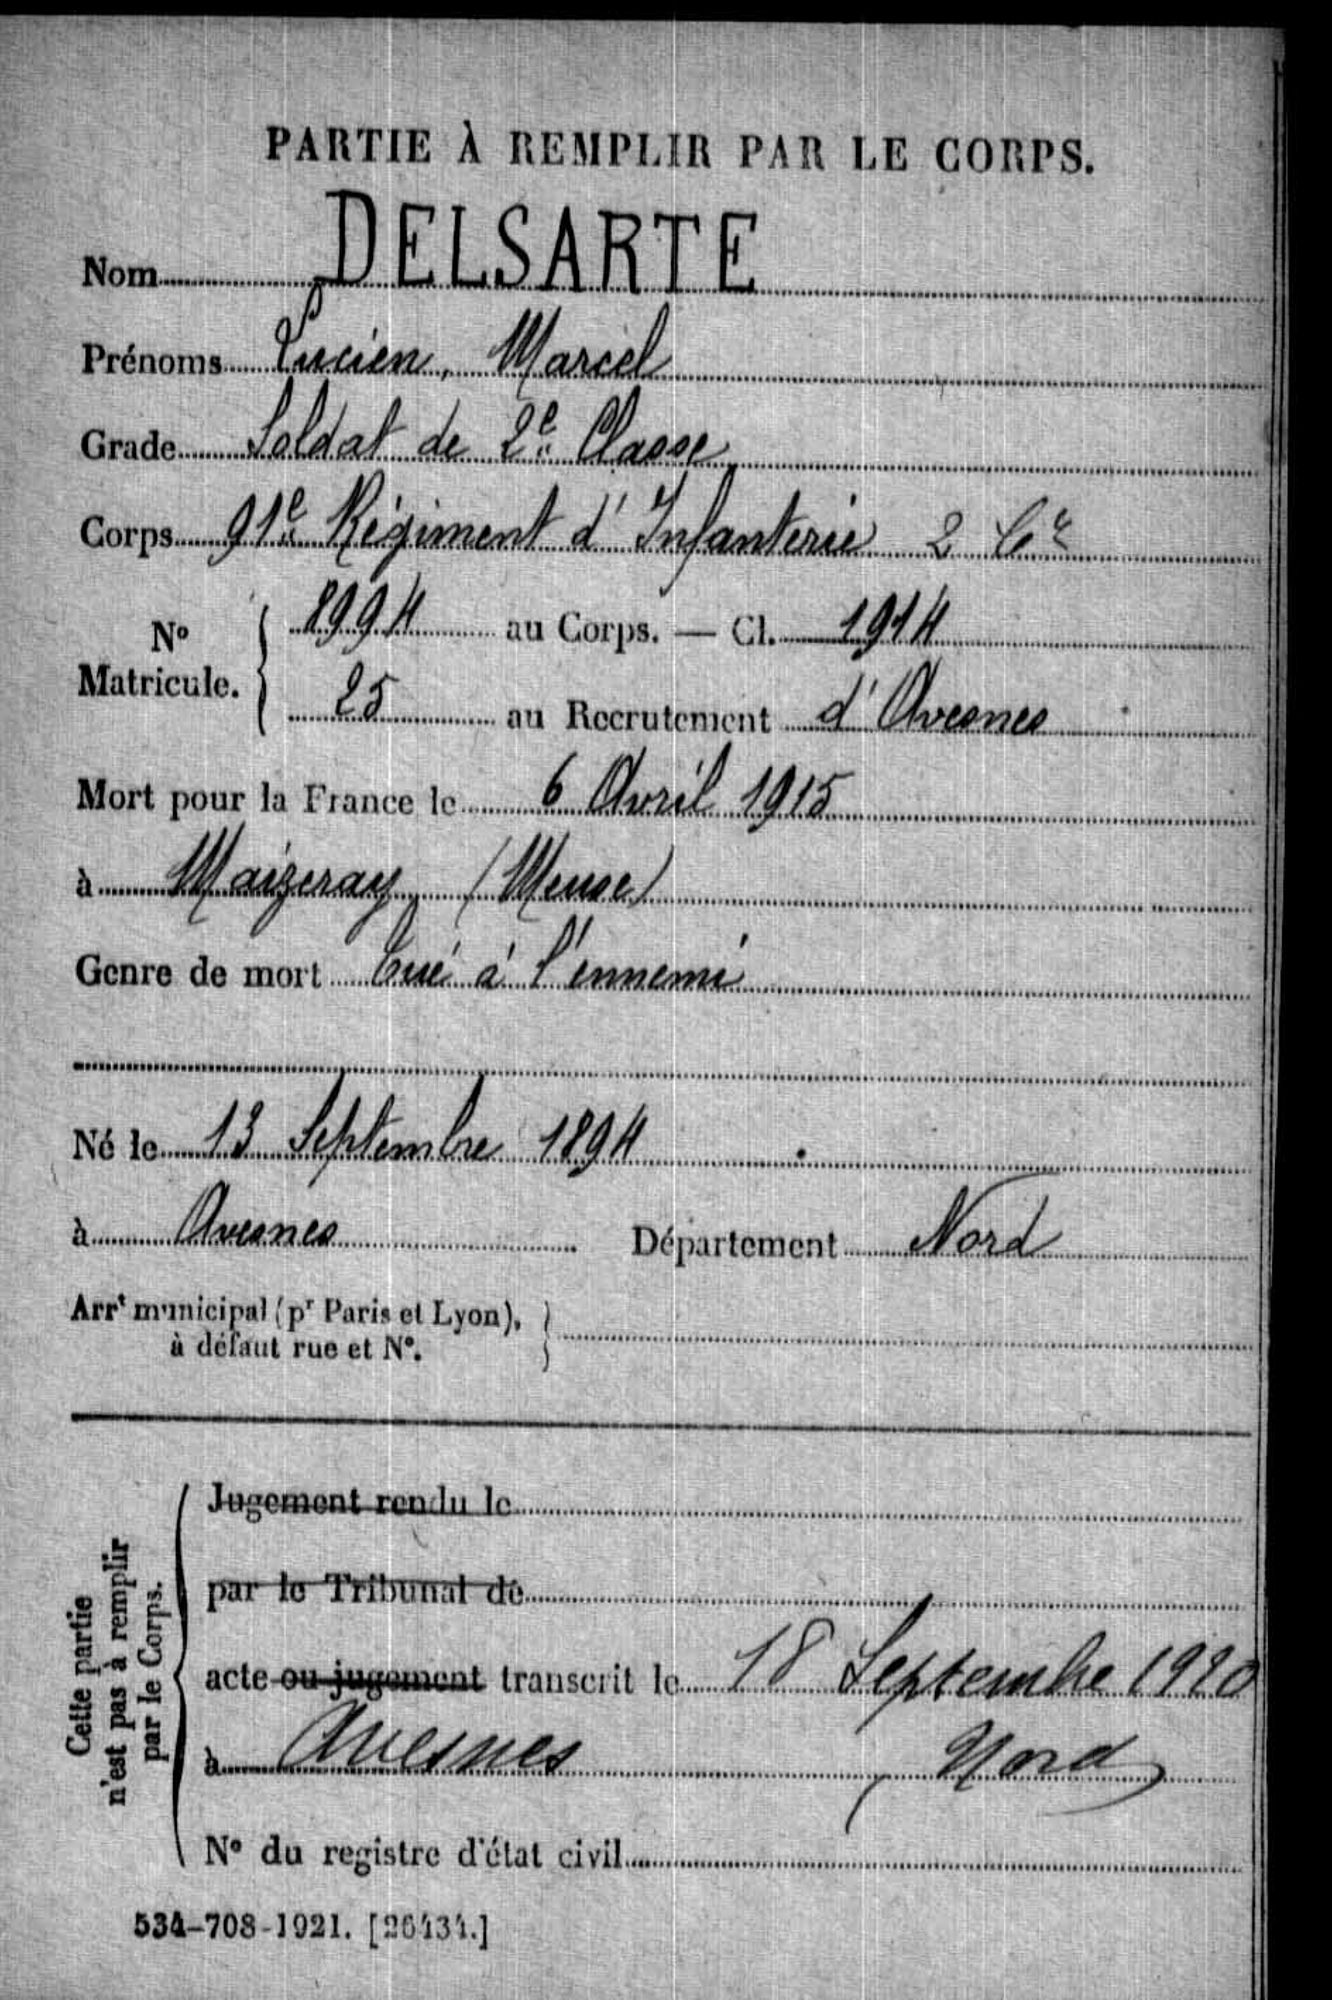 PARTIE À REMPLIR PAR LE CORPS.
Nom DELSARTE
Prénoms Lucien, Marcel
Grade Soldat de 2e Classe
Corps 91e Régiment d'Infanterie 2 Cie
N° Matricule. { 8994 au Corps. — Cl. 1914
25 au Recrutement d'Avesnes
Mort pour la France le 6 Avril 1915
à Maizeray (Meuse)
Genre de mort Tué à l'ennemi
Né le 13 Septembre 1894
à Avesnes Département Nord
Arrt municipal (pr Paris et Lyon),
à défaut rue et N°. }
Cette partie
n'est pas à remplir
par le Corps.
Jugement rendu le
par le Tribunal de
acte ou jugement transcrit le 18 Septembre 1920
à Avesnes (Nord)
N° du registre d'état civil
534-708-1921. [26434.]